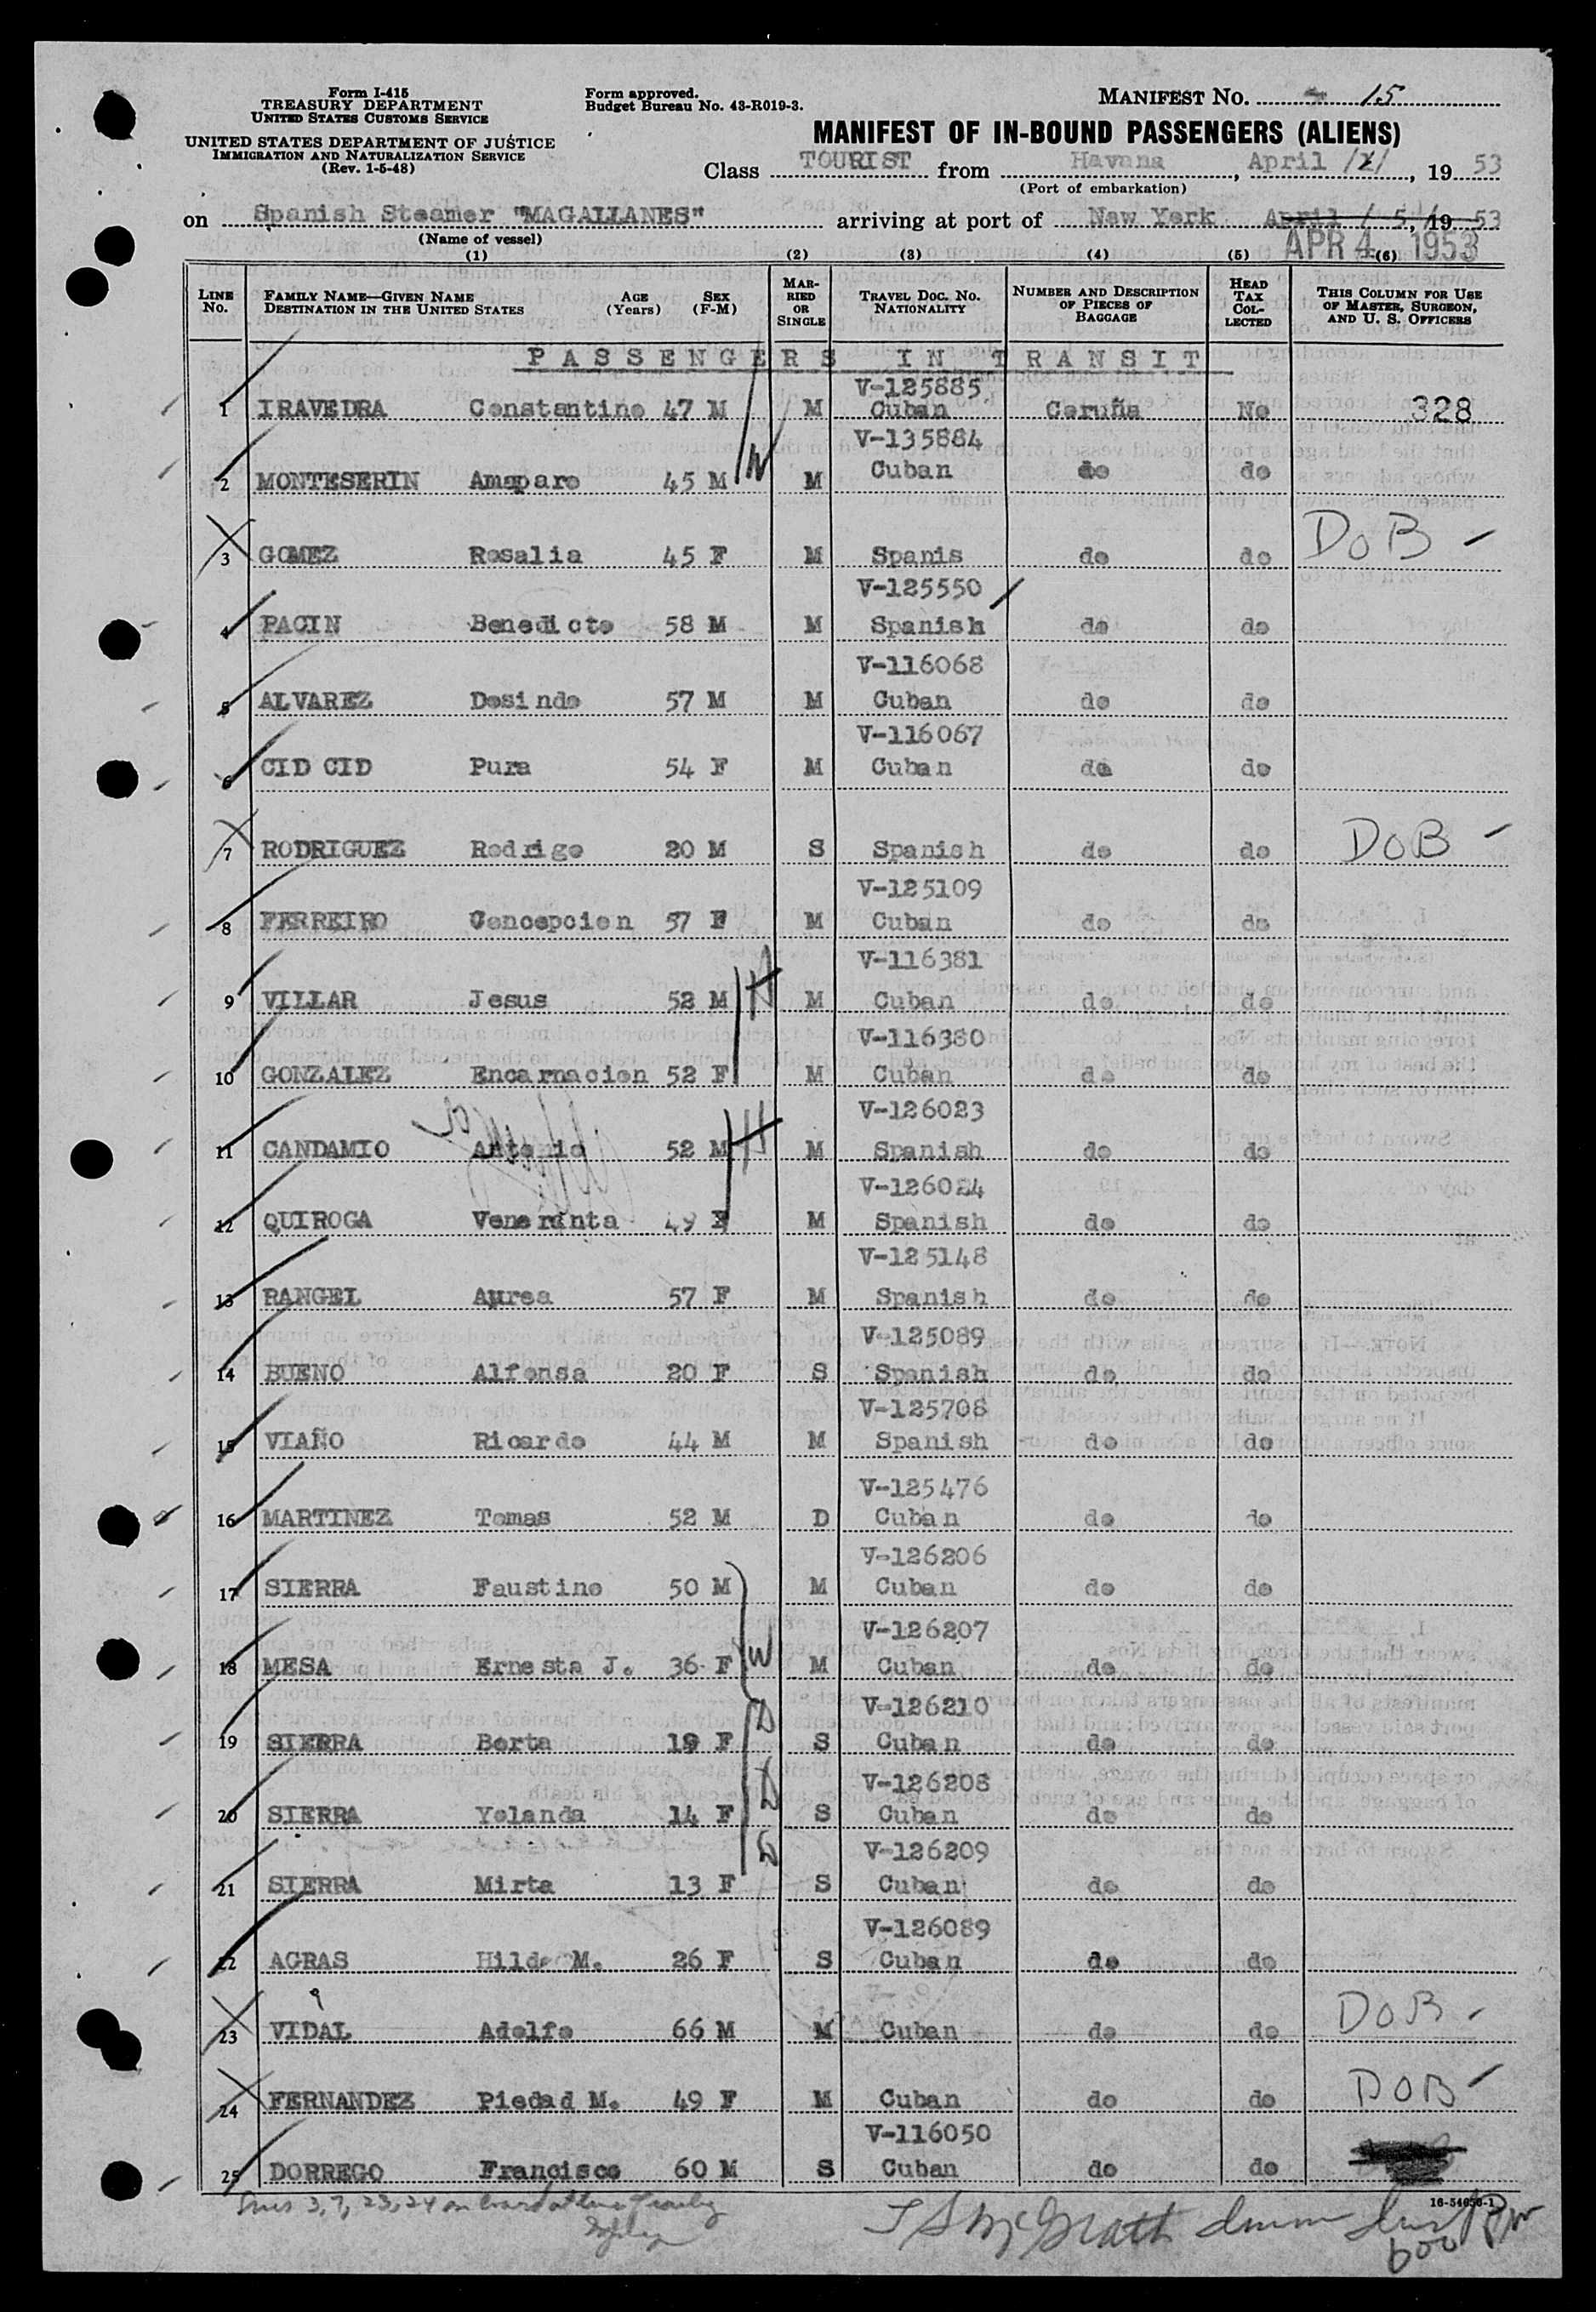 Form I-415
TREASURY DEPARTMENT
UNITED STATES CUSTOMS SERVICE
UNITED STATES DEPARTMENT OF JUSTICE
IMMIGRATION AND NATURALIZATION SERVICE
(Rev. 1-5-48)
Form approved.
Budget Bureau No. 43-R019-3.
MANIFEST No. 15
MANIFEST OF IN-BOUND PASSENGERS (ALIENS)
Class TOURIST from Havana, April /1/, 19 53
(Port of embarkation)
on Spanish Steamer "MAGALLANES" arriving at port of New York April / 5 /, 19 53
(Name of vessel)
APR 4 1953
(1) (2) (3) (4) (5) (6)
LINE No. FAMILY NAME—GIVEN NAME DESTINATION IN THE UNITED STATES AGE (Years) SEX (F-M) MARRIED OR SINGLE TRAVEL DOC. NO. NATIONALITY NUMBER AND DESCRIPTION OF PIECES OF BAGGAGE HEAD TAX COLLECTED THIS COLUMN FOR USE OF MASTER, SURGEON, AND U. S. OFFICERS
PASSENGERS IN TRANSIT
V-125885
1 IRAVEDRA Constantino 47 M M Cuban Coruña No 328
V-135884
2 MONTESERIN Amaparo 45 M W M Cuban do do
3 GOMEZ Rosalia 45 F M Spanis do do DOB -
V-125550
4 PACIN Benedicto 58 M M Spanish do do
V-116068
5 ALVAREZ Dosindo 57 M M Cuban do do
V-116067
6 CID CID Pura 54 F M Cuban do do
7 RODRIGUEZ Rodrigo 20 M S Spanish do do DOB -
V-125109
8 FERREIRO Concepcion 57 F M Cuban do do
V-116381
9 VILLAR Jesus 52 M H M Cuban do do
V-116380
10 GONZALEZ Encarnacion 52 F M Cuban do do
V-126023
11 CANDAMIO Antonio 52 M H M Spanish do do
V-126024
12 QUIROGA Veneranta 49 F M Spanish do do
V-125148
13 RANGEL Aurea 57 F M Spanish do do
V-125089
14 BUENO Alfonsa 20 F S Spanish do do
V-125708
15 VIAÑO Ricardo 44 M M Spanish do do
V-125476
16 MARTINEZ Tomas 52 M D Cuban do do
V-126206
17 SIERRA Faustino 50 M M Cuban do do
V-126207
18 MESA Ernesta J. 36 F W M Cuban do do
V-126210
19 SIERRA Berta 19 F D S Cuban do do
V-126208
20 SIERRA Yolanda 14 F D S Cuban do do
V-126209
21 SIERRA Mirta 13 F D S Cuban do do
V-126089
22 AGRAS Hilda M. 26 F S Cuban do do
23 VIDAL Adolfo 66 M M Cuban do do DOB -
24 FERNANDEZ Piedad M. 49 F M Cuban do do DOB -
V-116050
25 DORREGO Francisco 60 M S Cuban do do
16-54050-1
Lines 3, 7, 23, 24 on board
McGrath